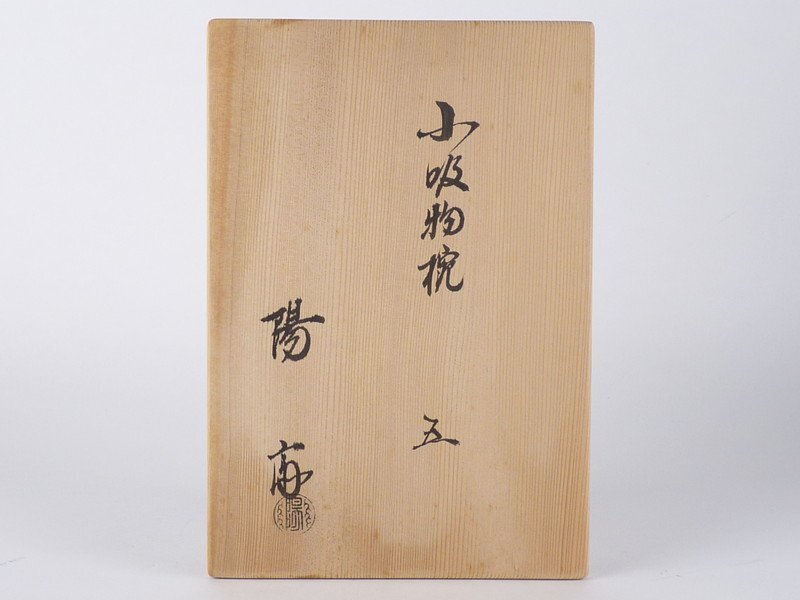 小吸物椀 五
陽斎